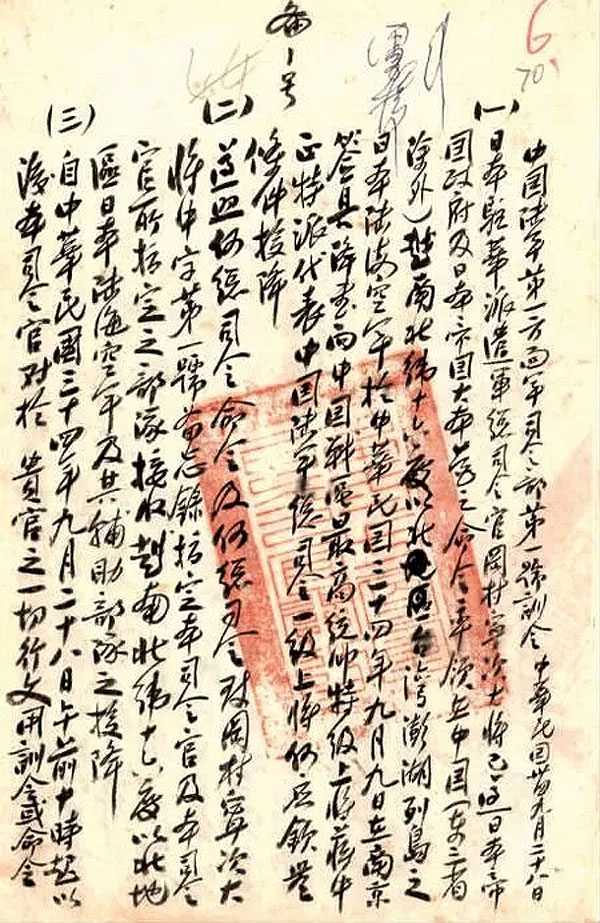 6
70
备1号
中国陆军第一方面军司令部第一號訓令 中華民国卅四年九月二十八日
(一)
日本駐華派遣軍總司令官岡村寧次大將已遵日本帝
国政府及日本帝国大本营之命令率领在中国(东三省
除外)越南北緯十六度以北地區台湾澎湖列島之
日本陆海空军於中華民国三十四年九月九日在南京
签具降书向中国战區最高统帅特级上将蒋中
正特派代表中国陆军总司令一级上将何应钦無
條件投降
(二)
遵照何總司令命令及何總司令致岡村寧次大
將中字第一號备忘錄指定本司令官及本司令
官所指定之部隊接收越南北緯十六度以北地
區日本陆海空军及其辅助部隊之投降
(三)
自中華民國三十四年九月二十八日午前十時起以
後本司令官对於 貴官之一切行文用訓令或命令